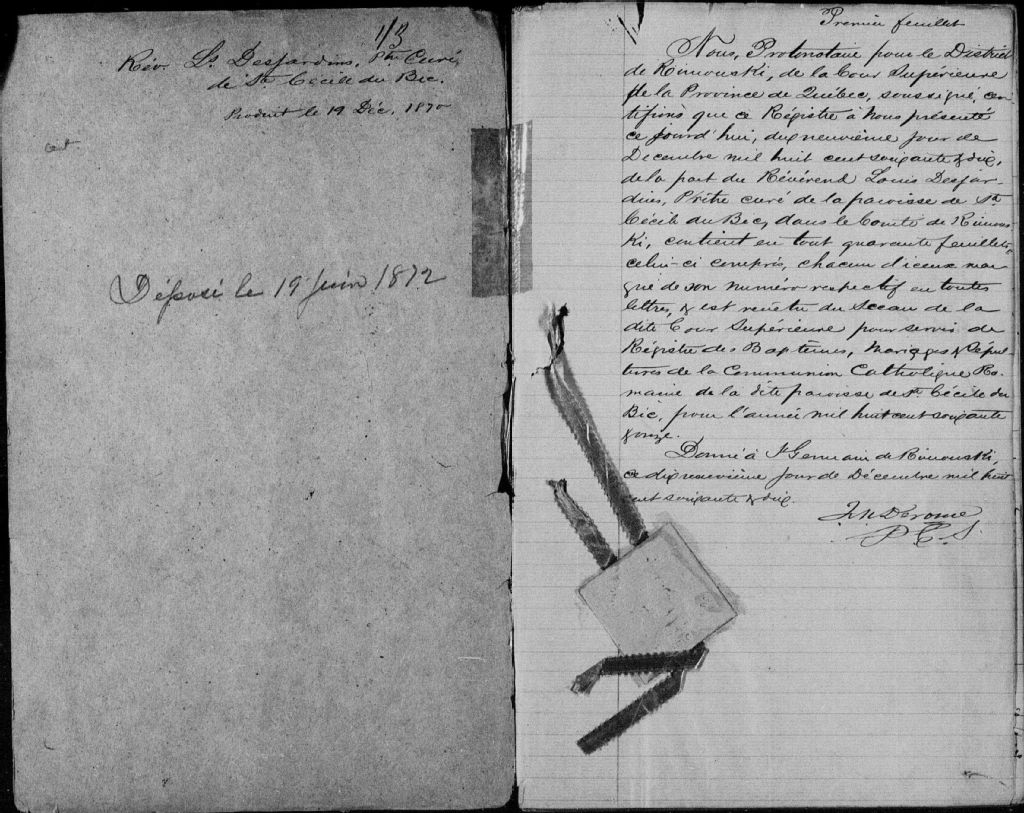 1/3
Rév. Ls. Desjardins, Ptre Curé,
de Ste Cécile du Bic.
Produit le 19 Déc. 1870
cent
Déposé le 19 Juin 1872
Premier feuillet
Nous, Protonotaire pour le District
de Rimouski, de la Cour Supérieure
de la Province de Québec, soussigné, cer
tifions que ce Régistre à Nous présenté
ce jourd'hui, dixneuvième jour de
Décembre mil huit cent soixante & dix,
de la part du Révérend Louis Desjar-
dins, Prêtre curé de la paroisse de Ste
Cécile du Bic, dans le Comté de Rimous
ki, contient en tout quarante feuillets,
celui-ci compris, chacun d'iceux mar
qué de son numéro respectif en toutes
lettres, & est revêtu du Sceau de la
dite Cour Supérieure pour servir de
Régistre des Baptêmes, Mariages & Sépul-
tures de la Communion Catholique Ro-
maine de la dite paroisse de Ste Cécile du
Bic, pour l'année mil huit cent soixante
& onze.
Donné à St Germain de Rimouski,
ce dixneuvième jour de Décembre mil huit
cent soixante & dix.
Derome
P. C. S.